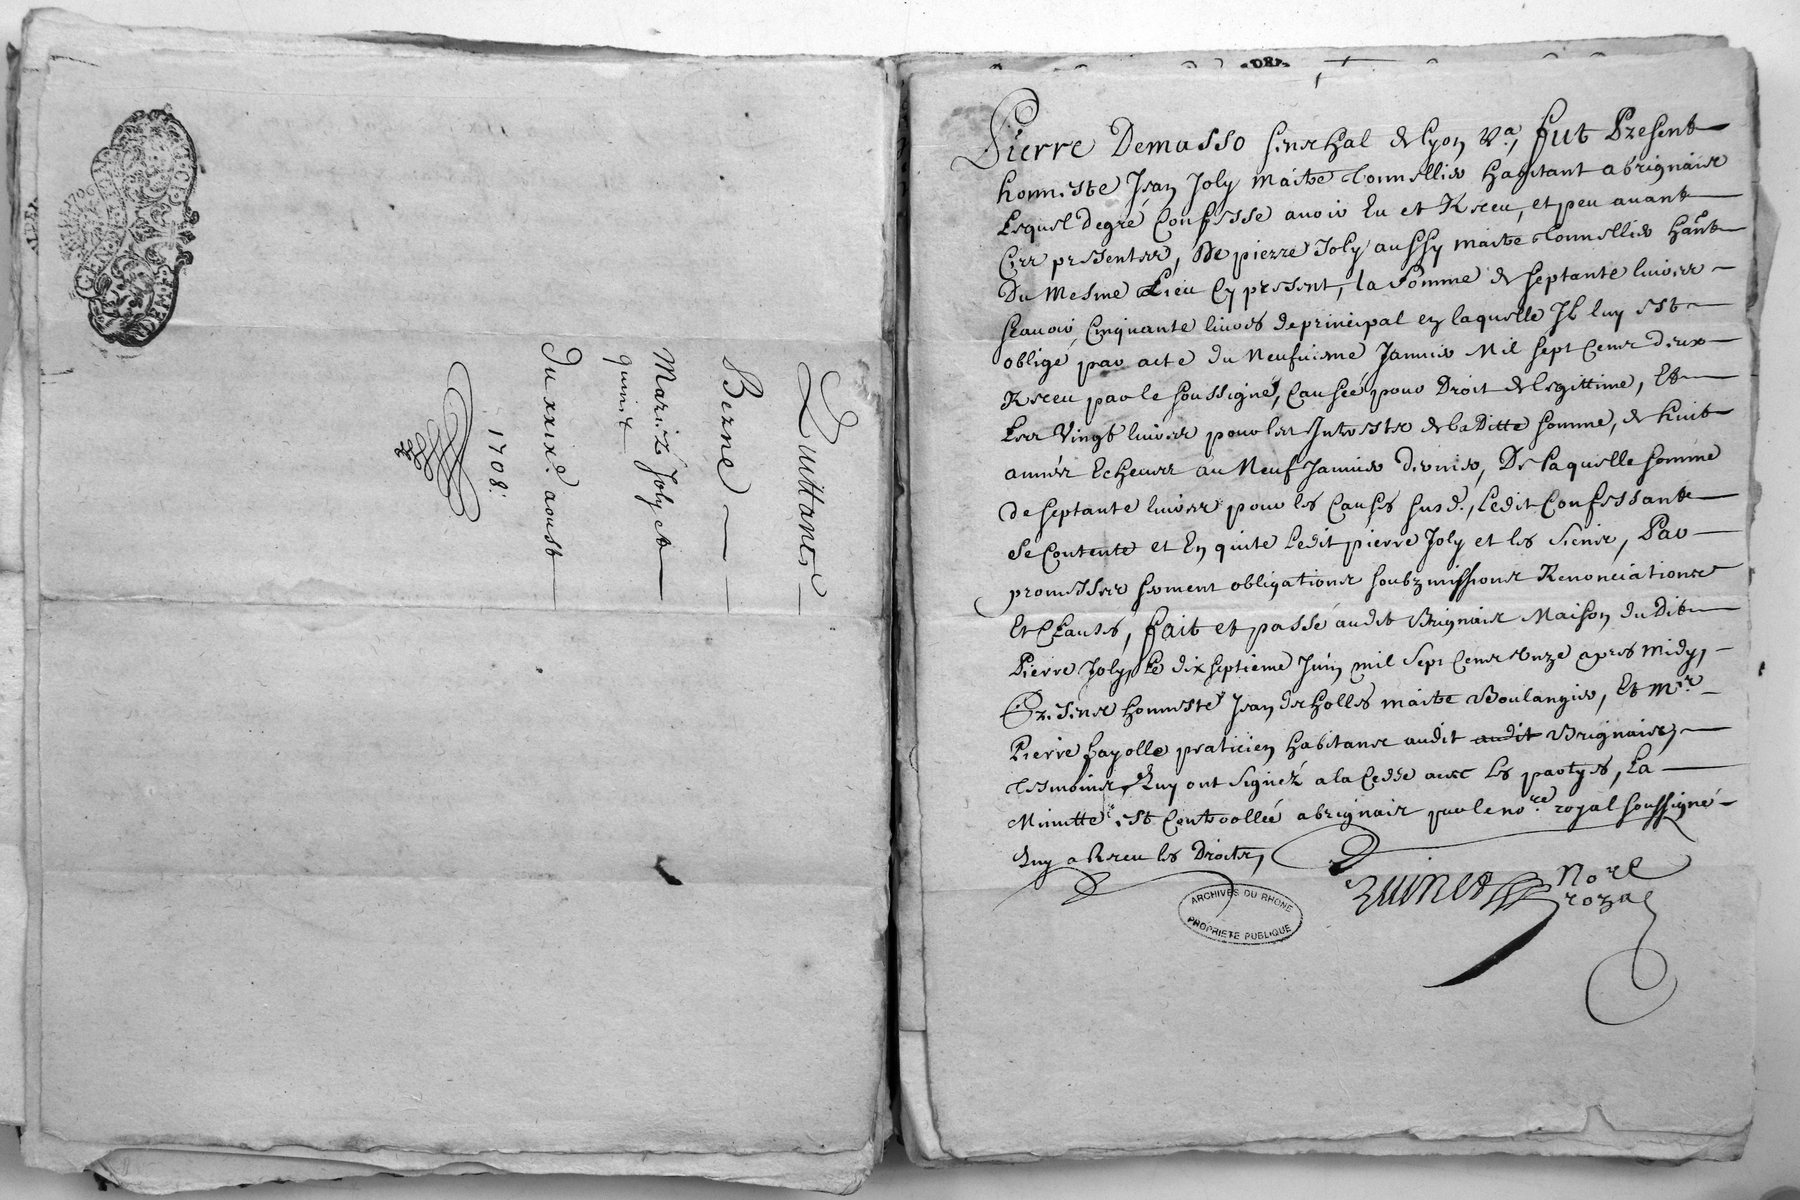 Quittance
Berne
Mariz Joly et
quinet
Du xxix.e aoust
1708.
Pierre Demasso senechal de lyon &.a, fut Present
honneste Jean Joly maitre Tonnellier habitant a brignais
Lequel de gré Confesse avoir Eu et Receu, et peu avant
Ces presentes, De pierre Joly aussy maitre Tonnellier hant
Du mesme Lieu Cy present, la somme de septante livres
scavoir Cinquante livres de principal en laquelle Il luy est
obligé par acte du Neufuieme Janvier Mil sept Cens deux
Receu par le soussigné, Causée pour Droit de legittime, Et
Les Vingt livres pour les Interests de la Ditte somme, de huit
années Echeues au Neuf Janvier dernier, De laquelle somme
de septante livres pour les Causes susd., Ledit Confessant
se Contente et En quite Ledit pierre Joly et les siens, Par
promesses serment obligations soubzmissions Renonciations
Et Clauses, fait et passé audit Brignais Maison du Dit
Pierre Joly, Le dix septieme Juin mil sept Cens Onze apres midy,
Presens honneste Jean desholles maitre Boulangier, Et Mr.
Pierre fayolle praticien habitans audit audit Brignais,
Tesmoins, Quy ont signéz a la Cedde avec les partyes, La
Minutte est Controllée a brignais par le no.re royal soussigné
Quy a Receu les Droits,
quinet Nore
royal
ARCHIVES DU RHONE
PROPRIETE PUBLIQUE